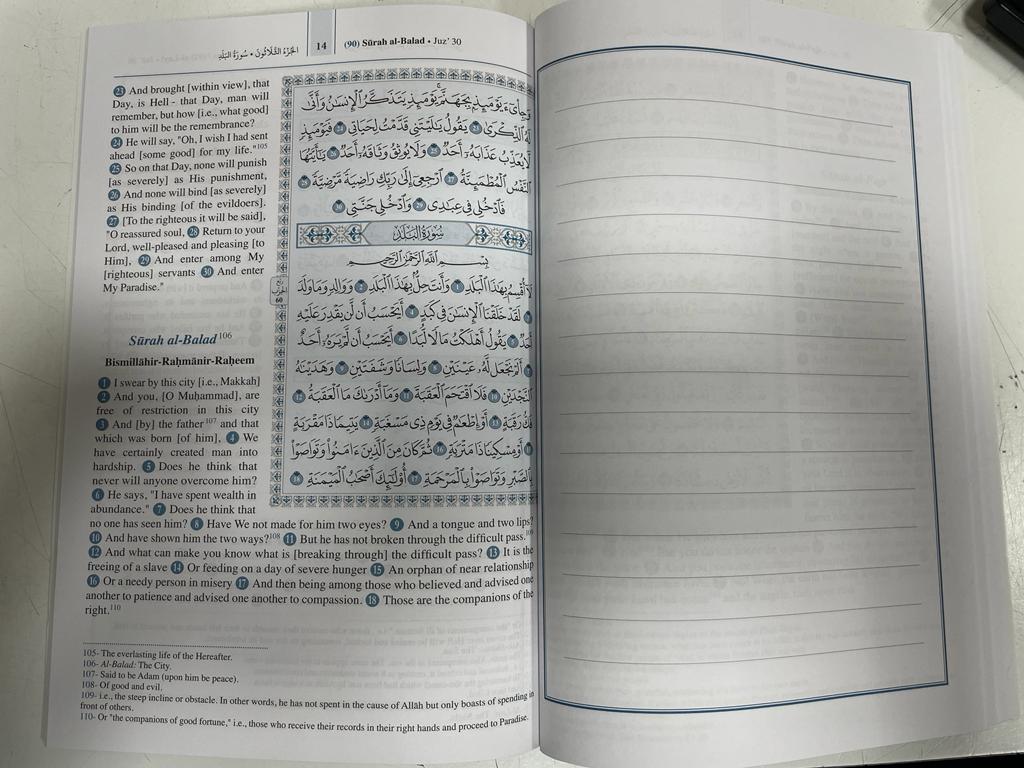 الجُزْءُ الثَّلَاثُونَ • سُورَةُ البَلَدِ
14
(90) Sūrah al-Balad • Juz' 30
23 And brought [within view], that
Day, is Hell - that Day, man will
remember, but how [i.e., what good]
to him will be the remembrance?
24 He will say, "Oh, I wish I had sent
ahead [some good] for my life."105
25 So on that Day, none will punish
[as severely] as His punishment,
26 And none will bind [as severely]
as His binding [of the evildoers].
27 [To the righteous it will be said],
"O reassured soul, 28 Return to your
Lord, well-pleased and pleasing [to
Him], 29 And enter among My
[righteous] servants 30 And enter
My Paradise."
Sūrah al-Balad106
Bismillāhir-Raḥmānir-Raḥeem
1 I swear by this city [i.e., Makkah]
2 And you, [O Muḥammad], are
free of restriction in this city
3 And [by] the father107 and that
which was born [of him], 4 We
have certainly created man into
hardship. 5 Does he think that
never will anyone overcome him?
6 He says, "I have spent wealth in
abundance." 7 Does he think that
no one has seen him? 8 Have We not made for him two eyes? 9 And a tongue and two lips?
10 And have shown him the two ways?108 11 But he has not broken through the difficult pass.109
12 And what can make you know what is [breaking through] the difficult pass? 13 It is the
freeing of a slave 14 Or feeding on a day of severe hunger 15 An orphan of near relationship
16 Or a needy person in misery 17 And then being among those who believed and advised one
another to patience and advised one another to compassion. 18 Those are the companions of the
right.110
وَجِاْىٓءَ يَوْمَئِذٍۭ بِجَهَنَّمَ ۚ يَوْمَئِذٍ يَتَذَكَّرُ ٱلْإِنسَٰنُ وَأَنَّىٰ
لَهُ ٱلذِّكْرَىٰ ٢٣ يَقُولُ يَٰلَيْتَنِى قَدَّمْتُ لِحَيَاتِى ٢٤ فَيَوْمَئِذٍ
لَّا يُعَذِّبُ عَذَابَهُۥٓ أَحَدٌ ٢٥ وَلَا يُوثِقُ وَثَاقَهُۥٓ أَحَدٌ ٢٦ يَٰٓأَيَّتُهَا
ٱلنَّفْسُ ٱلْمُطْمَئِنَّةُ ٢٧ ٱرْجِعِىٓ إِلَىٰ رَبِّكِ رَاضِيَةً مَّرْضِيَّةً ٢٨
فَٱدْخُلِى فِى عِبَٰدِى ٢٩ وَٱدْخُلِى جَنَّتِى ٣٠
سُورَةُ البَلَدِ
بِسْمِ ٱللَّهِ ٱلرَّحْمَٰنِ ٱلرَّحِيمِ
لَآ أُقْسِمُ بِهَٰذَا ٱلْبَلَدِ ١ وَأَنتَ حِلٌّۢ بِهَٰذَا ٱلْبَلَدِ ٢ وَوَالِدٍ وَمَا وَلَدَ
٣ لَقَدْ خَلَقْنَا ٱلْإِنسَٰنَ فِى كَبَدٍ ٤ أَيَحْسَبُ أَن لَّن يَقْدِرَ عَلَيْهِ
أَحَدٌ ٥ يَقُولُ أَهْلَكْتُ مَالًا لُّبَدًا ٦ أَيَحْسَبُ أَن لَّمْ يَرَهُۥٓ أَحَدٌ
٧ أَلَمْ نَجْعَل لَّهُۥ عَيْنَيْنِ ٨ وَلِسَانًا وَشَفَتَيْنِ ٩ وَهَدَيْنَٰهُ
ٱلنَّجْدَيْنِ ١٠ فَلَا ٱقْتَحَمَ ٱلْعَقَبَةَ ١١ وَمَآ أَدْرَىٰكَ مَا ٱلْعَقَبَةُ ١٢
فَكُّ رَقَبَةٍ ١٣ أَوْ إِطْعَٰمٌ فِى يَوْمٍ ذِى مَسْغَبَةٍ ١٤ يَتِيمًا ذَا مَقْرَبَةٍ
١٥ أَوْ مِسْكِينًا ذَا مَتْرَبَةٍ ١٦ ثُمَّ كَانَ مِنَ ٱلَّذِينَ ءَامَنُوا۟ وَتَوَاصَوْا۟
بِٱلصَّبْرِ وَتَوَاصَوْا۟ بِٱلْمَرْحَمَةِ ١٧ أُو۟لَٰٓئِكَ أَصْحَٰبُ ٱلْمَيْمَنَةِ ١٨
105- The everlasting life of the Hereafter.
106- Al-Balad: The City.
107- Said to be Adam (upon him be peace).
108- Of good and evil.
109- i.e., the steep incline or obstacle. In other words, he has not spent in the cause of Allāh but only boasts of spending in
front of others.
110- Or "the companions of good fortune," i.e., those who receive their records in their right hands and proceed to Paradise.